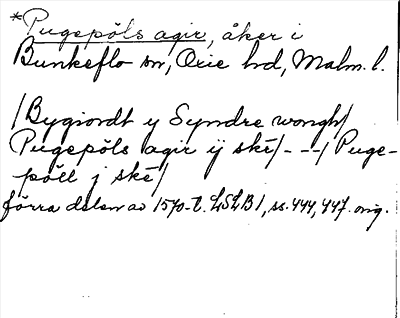 *Pugepöls agir, åker i
Bunkeflo sn, Oxie hd, Malm. l.
/Bygiordt y Syndre wongh/
Pugepöls agir ij skē/---/Puge-
pöll j skē/
förra delen av 1570-t. LSLB1, ss. 444, 447. orig.